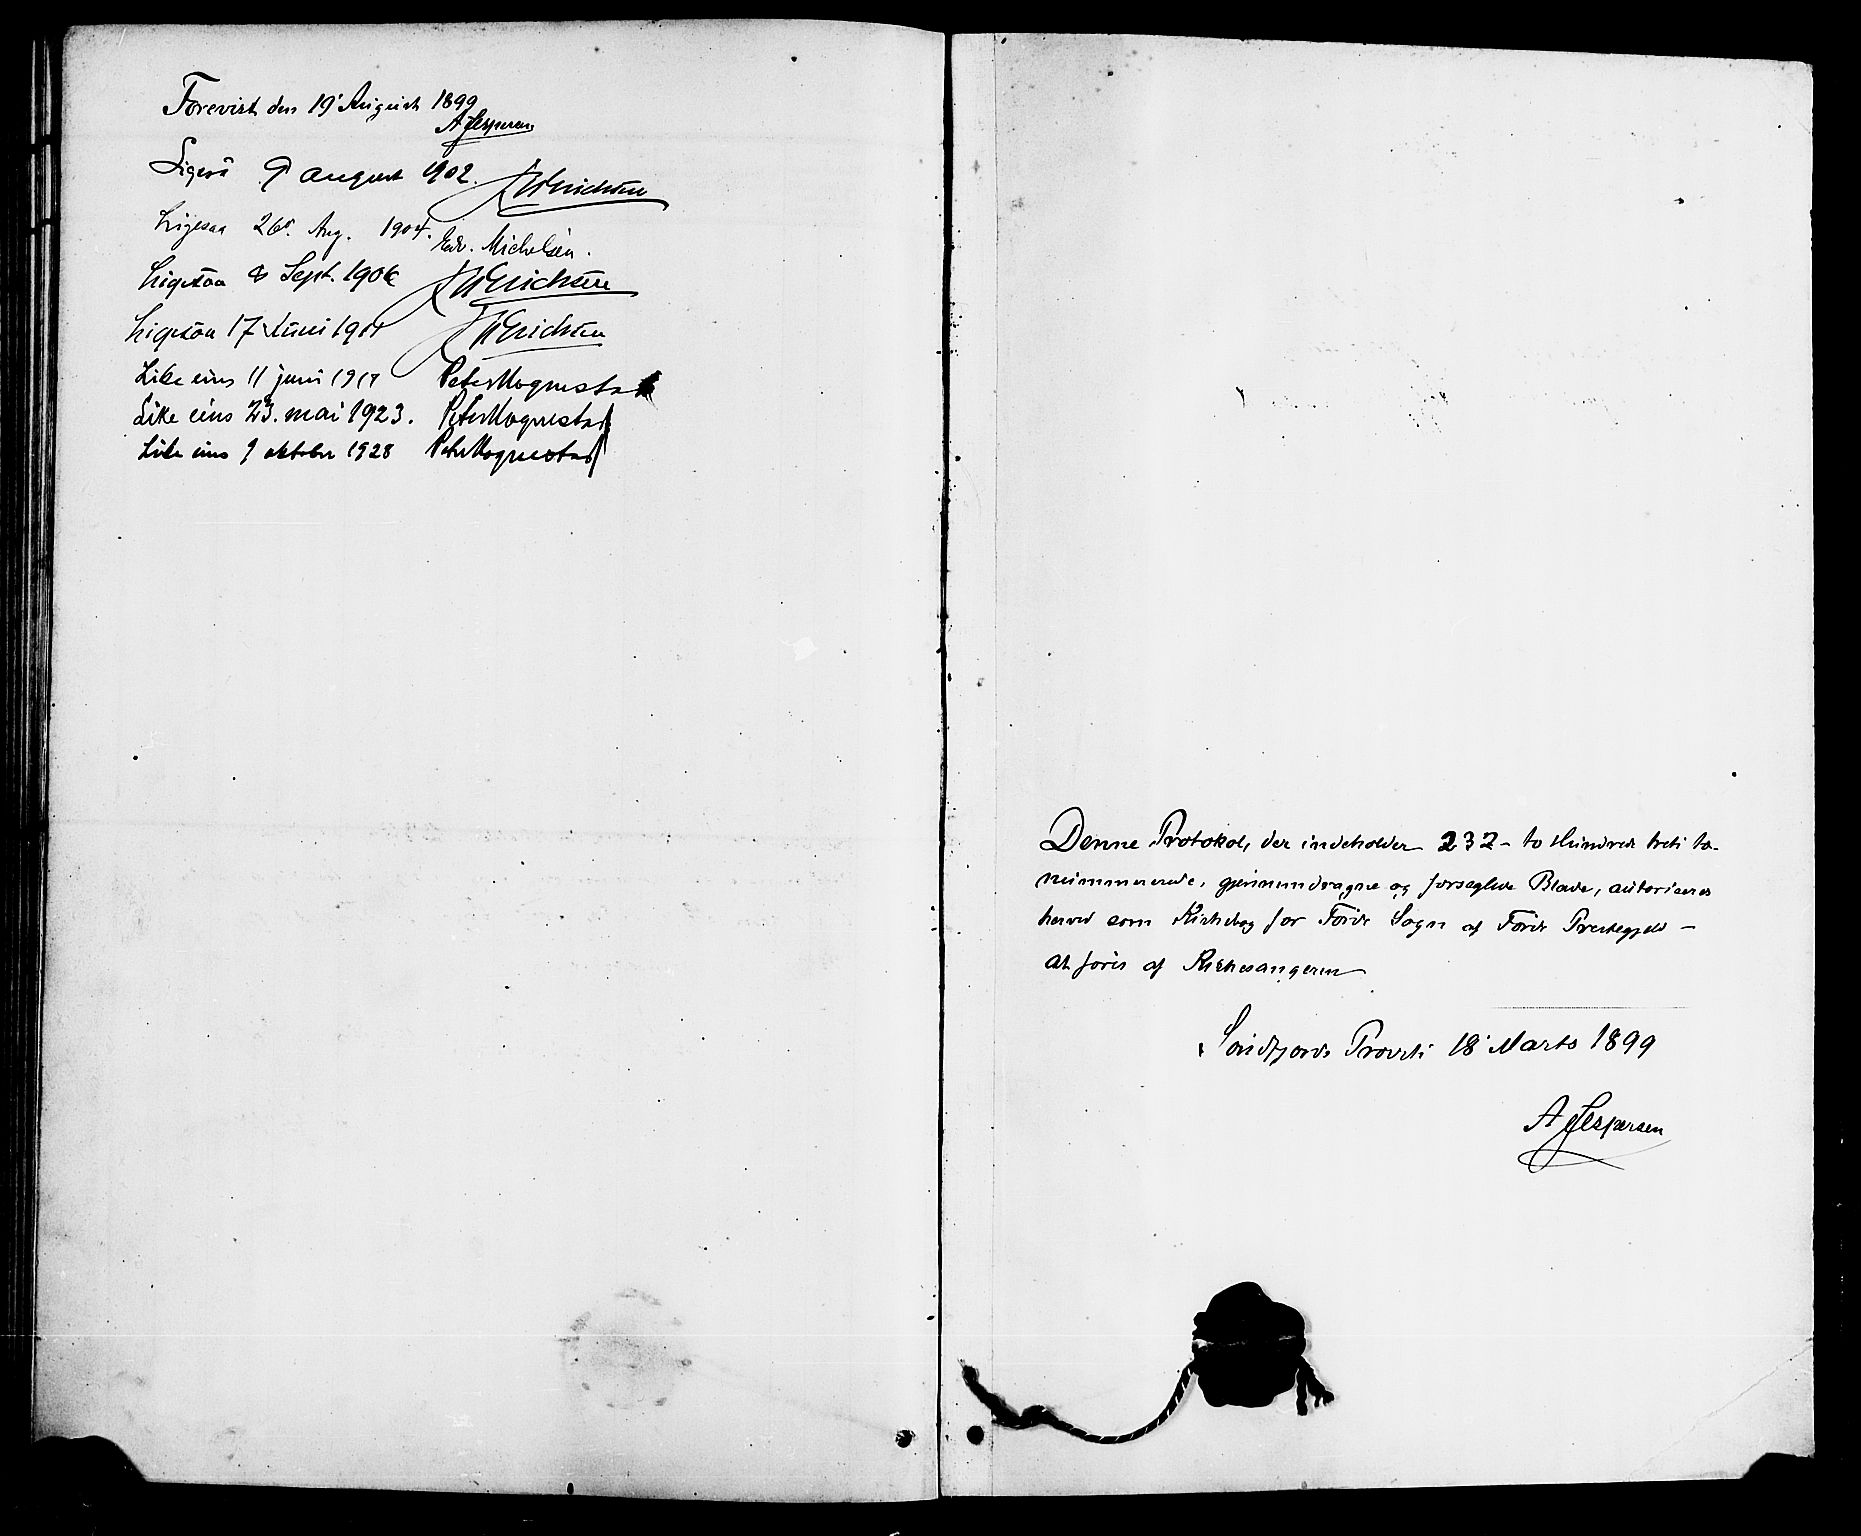 Forevist den 19' August 1899
A Jespersen
Ligeså 9 august 1902. Erichsen
Ligesaa 26de. Aug. 1904. Edv. Michelsen.
Ligesaa 8 Sept. 1906 Erichsen
Ligesaa 17 Juni 1911 Erichsen
Like eins 11 juni 1917 Peter Mognestad
Like eins 23. mai 1923. Peter Mognestad
Like eins 9 oktober 1928 Peter Mognestad
Denne Protokol, der indeholder 232 - to Hundred treti to -
nummererede, gjennemdragne og forseglede Blade, autoriseres
herved som Kirkebog for Förde Sogn af Förde Prestegjeld -
at föres af Kirkesangeren
Söndfjords Provsti 18' Marts 1899
A Jespersen